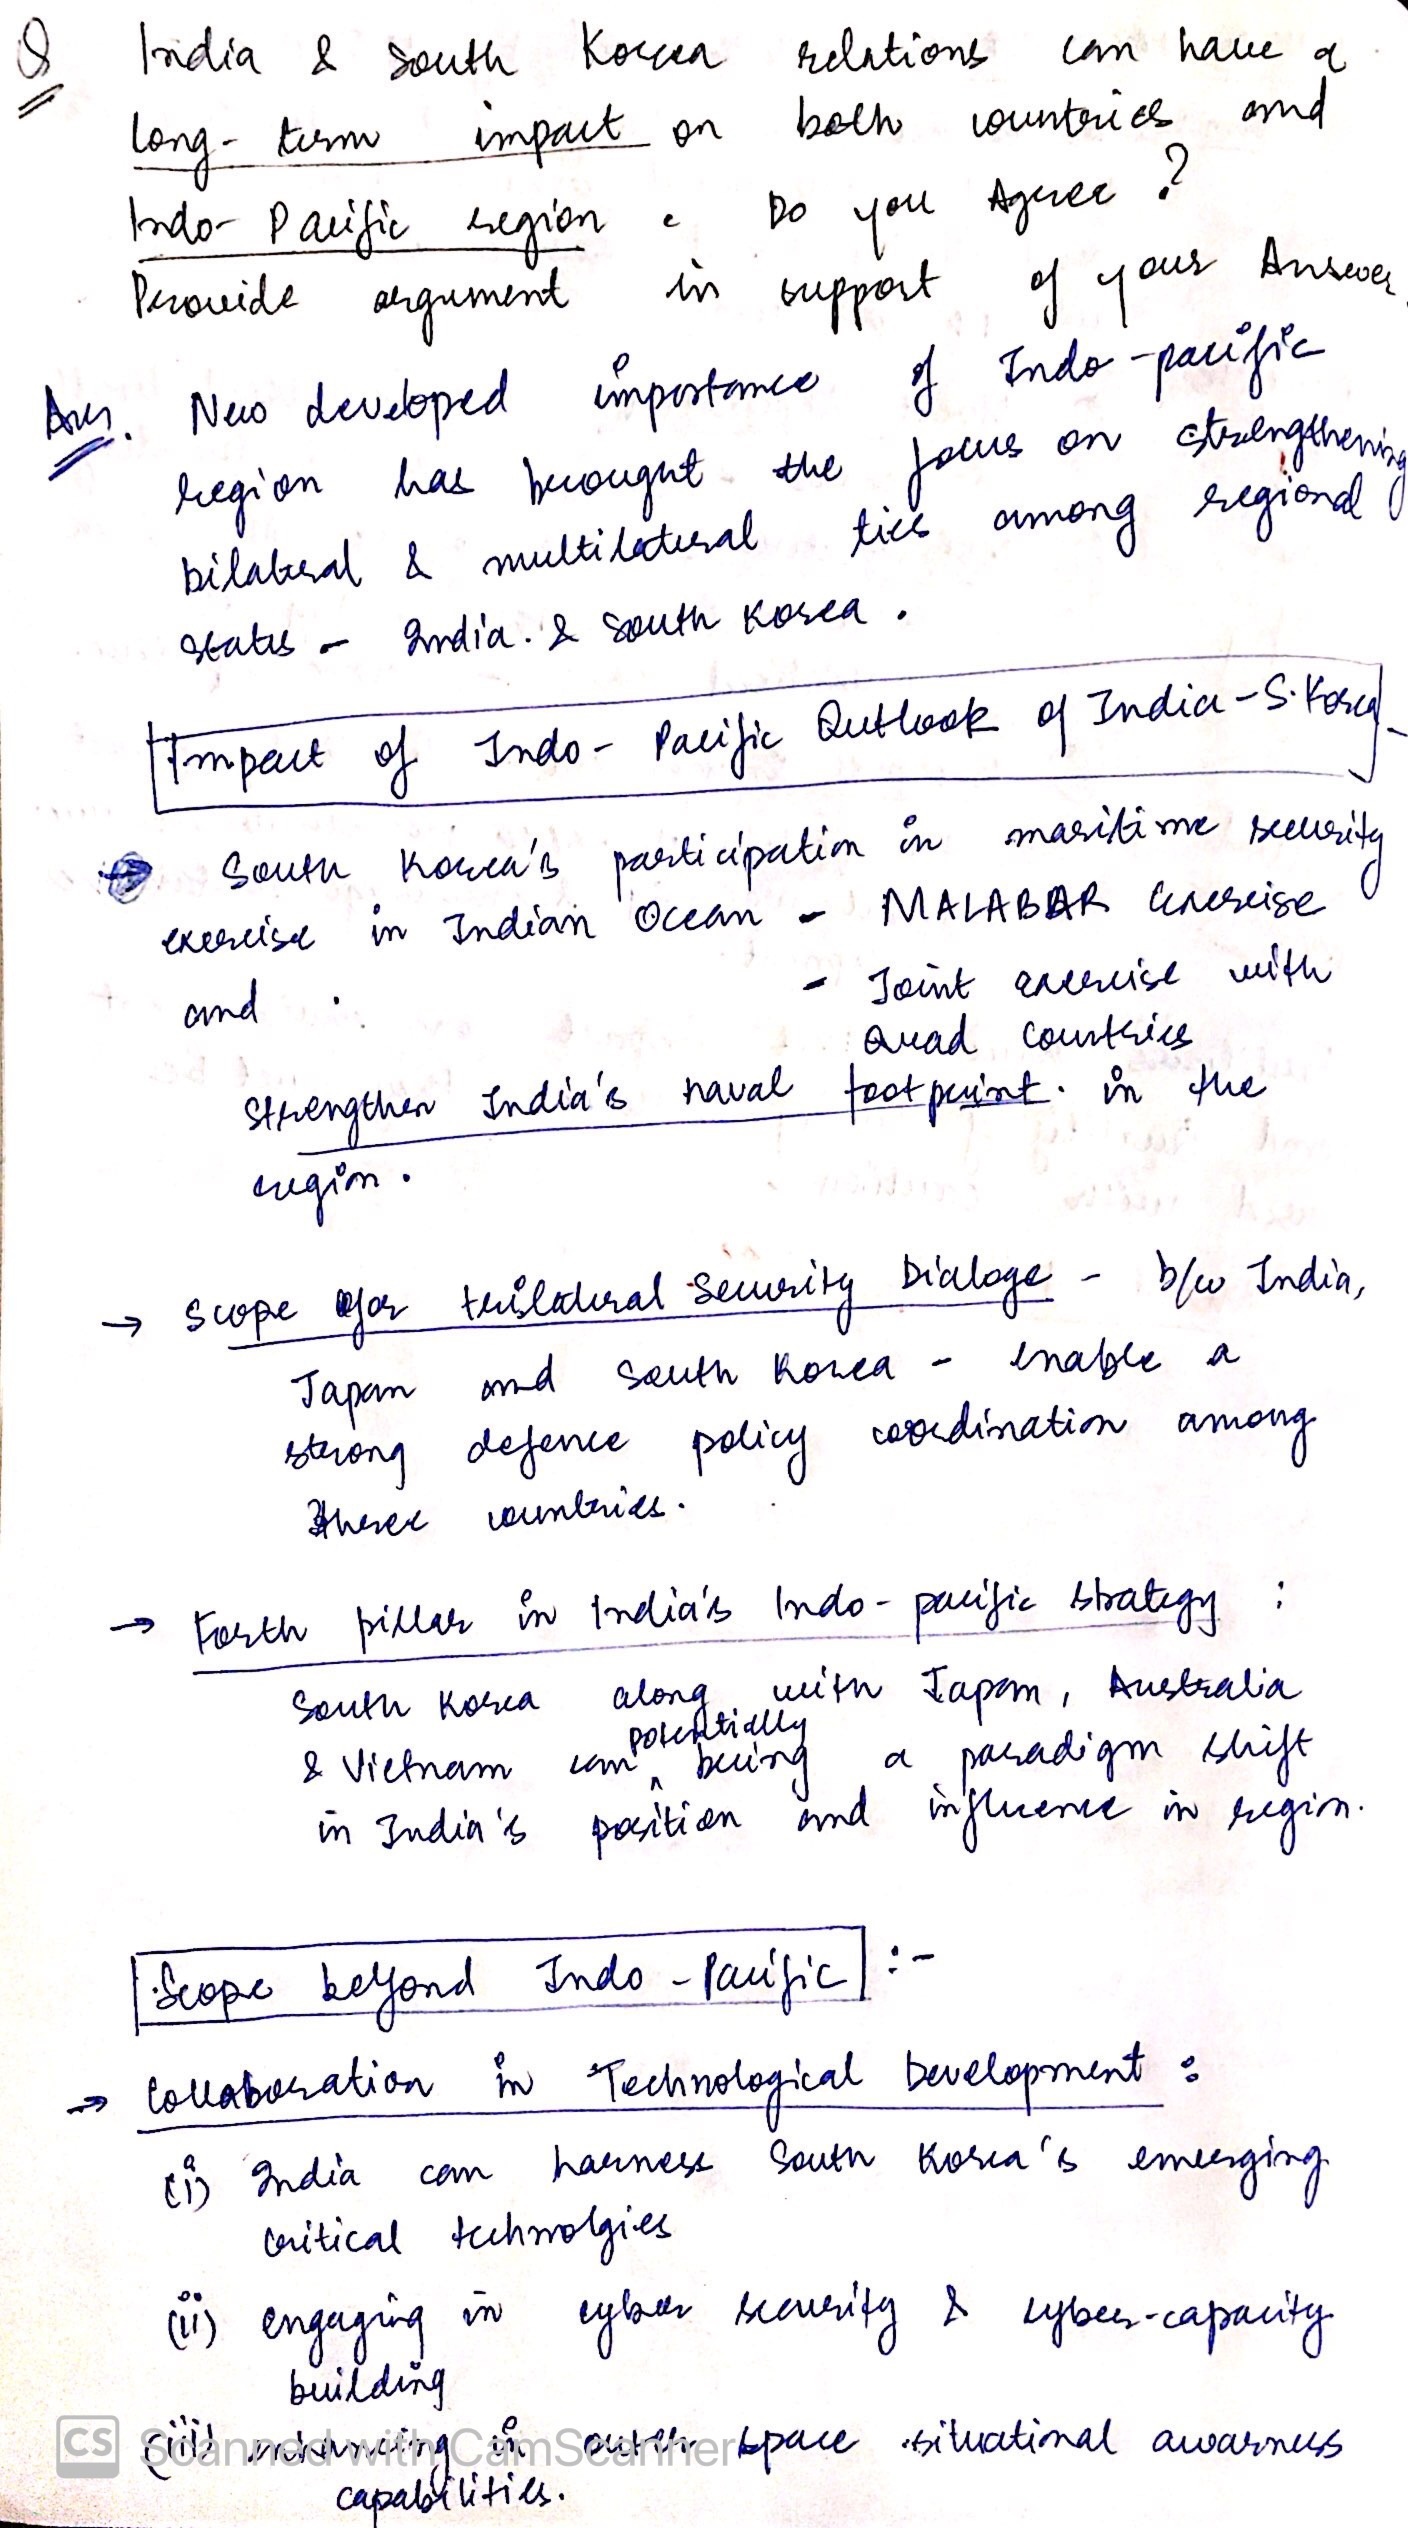 Q India & South Korea relations can have a
long-term impact on both countries and
Indo-Pacific region. Do you Agree?
Provide argument in support of your Answer.
Ans. New developed importance of Indo-pacific
region has brought the focus on strengthening
bilateral & multilateral ties among regional
states - India & South Korea.
Impact of Indo-Pacific Outlook of India-S.Korea -
→ South Korea's participation in maritime security
exercise in Indian Ocean - MALABAR Exercise
and - Joint exercise with
Quad Countries
strengthen India's naval footprint in the
region.
→ Scope for trilateral Security Dialoge - b/w India,
Japan and South Korea - enable a
strong defence policy coordination among
three countries.
→ Forth pillar in India's Indo-pacific strategy :
South Korea along with Japan, Australia
& Vietnam can potentially bring a paradigm shift
in India's position and influence in region.
Scope beyond Indo-Pacific :-
→ Collaboration in Technological Development :
(i) India can harness South Korea's emerging
critical technolgies
(ii) engaging in cyber security & cyber-capacity
building
(iii) advancing in outer space situational awarness
capabilities.
CS Scanned with CamScanner